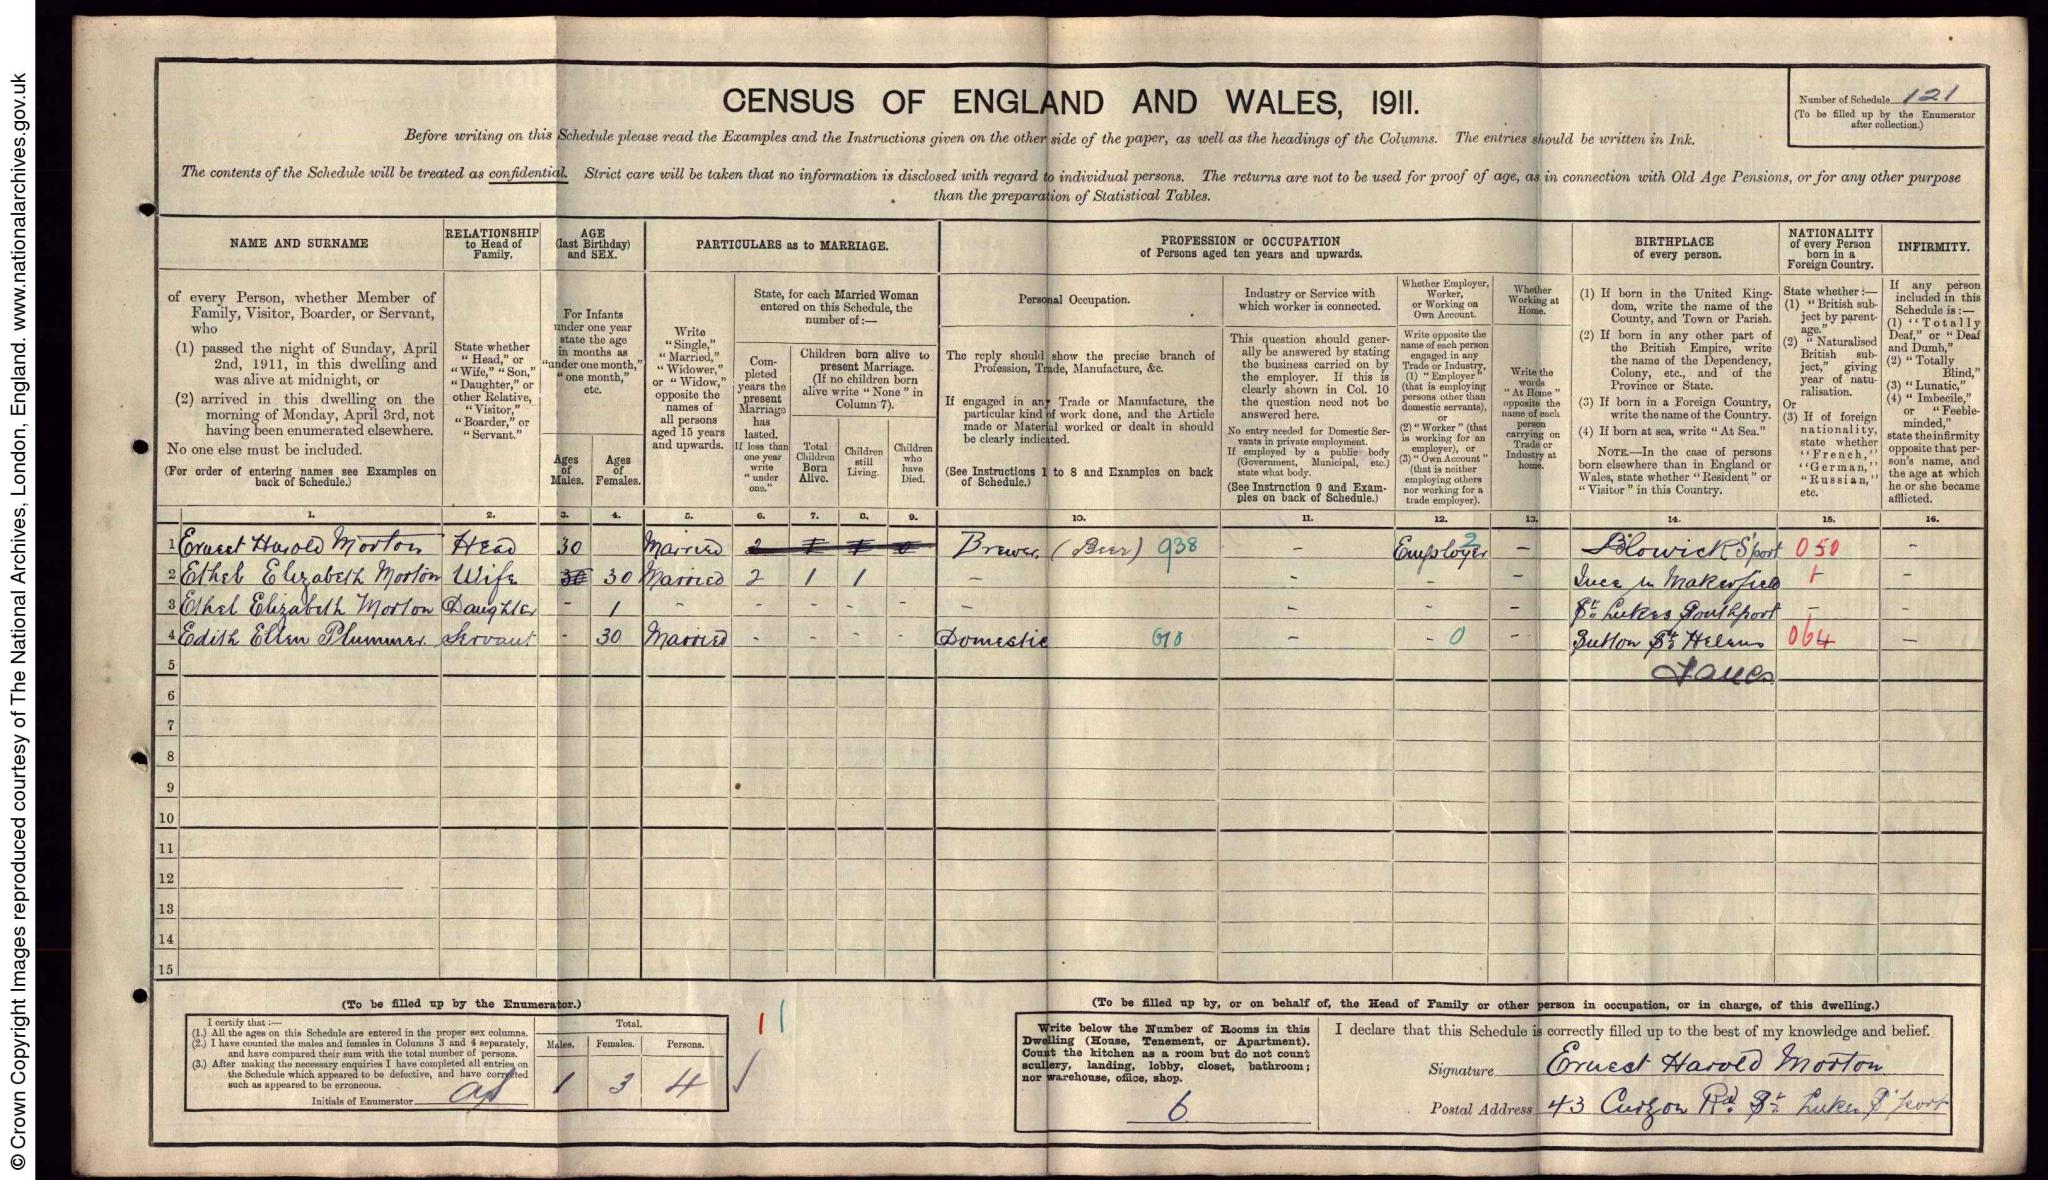 © Crown Copyright Images reproduced courtesy of The National Archives, London, England. www.nationalarchives.gov.uk
CENSUS OF ENGLAND AND WALES, 1911.
Number of Schedule 121
(To be filled up by the Enumerator
after collection.)
Before writing on this Schedule please read the Examples and the Instructions given on the other side of the paper, as well as the headings of the Columns. The entries should be written in Ink.
The contents of the Schedule will be treated as confidential. Strict care will be taken that no information is disclosed with regard to individual persons. The returns are not to be used for proof of age, as in connection with Old Age Pensions, or for any other purpose
than the preparation of Statistical Tables.
NAME AND SURNAME
of every Person, whether Member of
Family, Visitor, Boarder, or Servant,
who
(1) passed the night of Sunday, April
2nd, 1911, in this dwelling and
was alive at midnight, or
(2) arrived in this dwelling on the
morning of Monday, April 3rd, not
having been enumerated elsewhere.
No one else must be included.
(For order of entering names see Examples on
back of Schedule.)
RELATIONSHIP
to Head of
Family.
State whether
"Head," or
"Wife," "Son,"
"Daughter," or
other Relative,
"Visitor,"
"Boarder," or
"Servant."
AGE
(last Birthday)
and SEX.
For Infants
under one year
state the age
in months as
"under one month,"
"one month,"
etc.
Ages
of
Males.
Ages
of
Females.
PARTICULARS as to MARRIAGE.
Write
"Single,"
"Married,"
"Widower,"
or "Widow,"
opposite the
names of
all persons
aged 15 years
and upwards.
State, for each Married Woman
entered on this Schedule, the
number of:—
Com-
pleted
years the
present
Marriage
has
lasted.
If less than
one year
write
"under
one."
Children born alive to
present Marriage.
(If no children born
alive write "None" in
Column 7).
Total
Children
Born
Alive.
Children
still
Living.
Children
who
have
Died.
PROFESSION or OCCUPATION
of Persons aged ten years and upwards.
Personal Occupation.
The reply should show the precise branch of
Profession, Trade, Manufacture, &c.
If engaged in any Trade or Manufacture, the
particular kind of work done, and the Article
made or Material worked or dealt in should
be clearly indicated.
(See Instructions 1 to 8 and Examples on back
of Schedule.)
Industry or Service with
which worker is connected.
This question should gener-
ally be answered by stating
the business carried on by
the employer. If this is
clearly shown in Col. 10
the question need not be
answered here.
No entry needed for Domestic Ser-
vants in private employment.
If employed by a public body
(Government, Municipal, etc.)
state what body.
(See Instruction 9 and Exam-
ples on back of Schedule.)
Whether Employer,
Worker,
or Working on
Own Account.
Write opposite the
name of each person
engaged in any
Trade or Industry,
(1) "Employer"
(that is employing
persons other than
domestic servants),
or
(2) "Worker" (that
is working for an
employer), or
(3) "Own Account"
(that is neither
employing others
nor working for a
trade employer).
Whether
Working at
Home.
Write the
words
"At Home"
opposite the
name of each
person
carrying on
Trade or
Industry at
home.
BIRTHPLACE
of every person.
(1) If born in the United King-
dom, write the name of the
County, and Town or Parish.
(2) If born in any other part of
the British Empire, write
the name of the Dependency,
Colony, etc., and of the
Province or State.
(3) If born in a Foreign Country,
write the name of the Country.
(4) If born at sea, write "At Sea."
NOTE.—In the case of persons
born elsewhere than in England or
Wales, state whether "Resident" or
"Visitor" in this Country.
NATIONALITY
of every Person
born in a
Foreign Country.
State whether:—
(1) "British sub-
ject by parent-
age."
(2) "Naturalised
British sub-
ject," giving
year of natu-
ralisation.
Or
(3) If of foreign
nationality,
state whether
"French,"
"German,"
"Russian,"
etc.
INFIRMITY.
If any person
included in this
Schedule is:—
(1) "Totally
Deaf," or "Deaf
and Dumb,"
(2) "Totally
Blind,"
(3) "Lunatic,"
(4) "Imbecile,"
or "Feeble-
minded,"
state the infirmity
opposite that per-
son's name, and
the age at which
he or she became
afflicted.
1. 2. 3. 4. 5. 6. 7. 8. 9. 10. 11. 12. 13. 14. 15. 16.
1 Ernest Harold Morton Head 30 Married 2 1 1 0 Brewer (Beer) 938 – Employer 2 – Blowick S'port 050 –
2 Ethel Elizabeth Morton Wife 30 30 Married 2 1 1 – – – – Ince in Makerfield –
3 Ethel Elizabeth Morton Daughter – 1 – – – – – – – – – St Lukes Southport – –
4 Edith Ellen Plummer Servant – 30 Married – – – – Domestic 010 – – 0 – Sutton St Helens 064 –
5 Lancs
6
7
8
9
10
11
12
13
14
15
(To be filled up by the Enumerator.)
I certify that:—
(1.) All the ages on this Schedule are entered in the proper sex columns.
(2.) I have counted the males and females in Columns 3 and 4 separately,
and have compared their sum with the total number of persons.
(3.) After making the necessary enquiries I have completed all entries on
the Schedule which appeared to be defective, and have corrected
such as appeared to be erroneous.
Initials of Enumerator
Total.
Males. Females. Persons.
1 3 4
(To be filled up by, or on behalf of, the Head of Family or other person in occupation, or in charge, of this dwelling.)
Write below the Number of Rooms in this
Dwelling (House, Tenement, or Apartment).
Count the kitchen as a room but do not count
scullery, landing, lobby, closet, bathroom;
nor warehouse, office, shop.
6
I declare that this Schedule is correctly filled up to the best of my knowledge and belief.
Signature Ernest Harold Morton
Postal Address 43 Curzon Rd. St. Lukes S'port